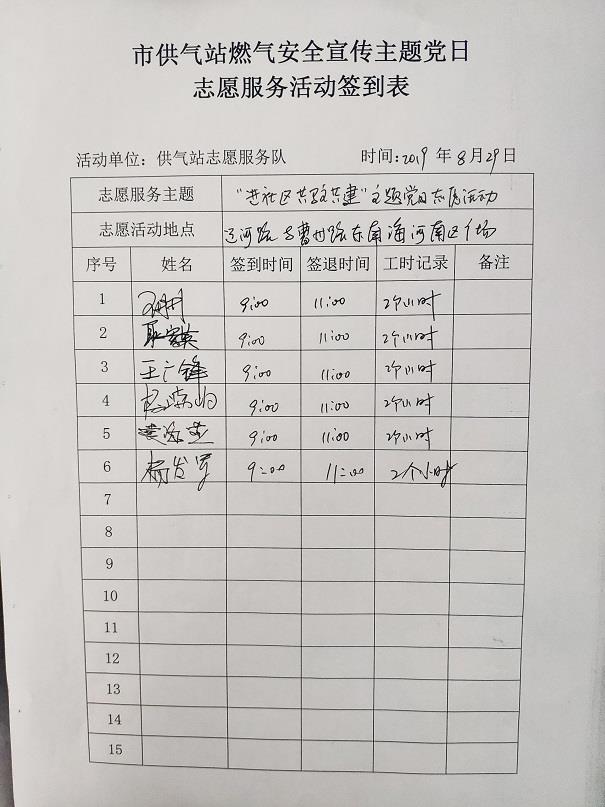 市供气站燃气安全宣传主题党日
志愿服务活动签到表
活动单位：供气站志愿服务队 时间：2019 年 8 月 29 日
志愿服务主题 "进社区共驻共建"主题党日志愿活动
志愿活动地点 运河路与曹州路东南海河南区广场
序号 姓名 签到时间 签退时间 工时记录 备注
1 9:00 11:00 2个小时
2 9:00 11:00 2个小时
3 王广锋 9:00 11:00 2个小时
4 9:00 11:00 2个小时
5 9:00 11:00 2个小时
6 杨发军 9:00 11:00 2个小时
7
8
9
10
11
12
13
14
15